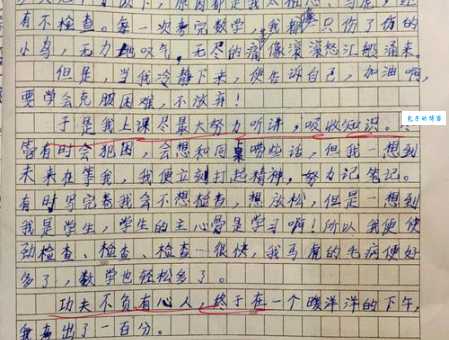 有不检查。每一次考完数学,我都像只伤了伤的
小鸟,无力地叹气,无尽的痛像滚滚怒汇般涌来。
但是,当我冷静下来,便告诉自己,加油啊,
要学会克服困难,不放弃!
于是我上课尽最大努力听讲,吸收知识。
管有时会犯困,会想和同桌唠些话,但我一想到
未来在等我,我便立刻打起精神,努力记笔记。
有时写完卷我会不想检查,想放松,但是一想到
我是学生,学生的主心骨是学习啊!所以我便
动检查、检查、检查…很快,我马虎的毛病便好
多了,数学也轻松多了。
功夫不负有心人,终于在一个暖洋洋的下午,
我考出了一百分。
孔子的博客